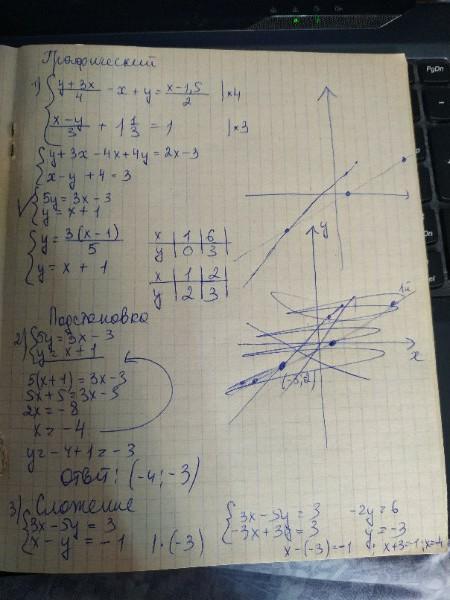 Графический
1) { (y+3x)/4 - x + y = (x-1,5)/2 | ×4
(x-y)/3 + 1 1/3 = 1 | ×3
{ y+3x-4x+4y=2x-3
x-y+4=3
{ 5y=3x-3
y=x+1
{ y= 3(x-1)/5
y=x+1
x | 1 | 6
y | 0 | 3
x | 1 | 2
y | 2 | 3
y
x
Подстановка
2) { 5y=3x-3
y=x+1
5(x+1)=3x-3
5x+5=3x-3
2x=-8
x=-4
y=-4+1=-3
Ответ: (-4;-3)
3) Сложение
{ 3x-5y=3
x-y=-1 | ·(-3)
{ 3x-5y=3
-3x+3y=3
-2y=6
y=-3
x-(-3)=-1
PgDn
PgUp